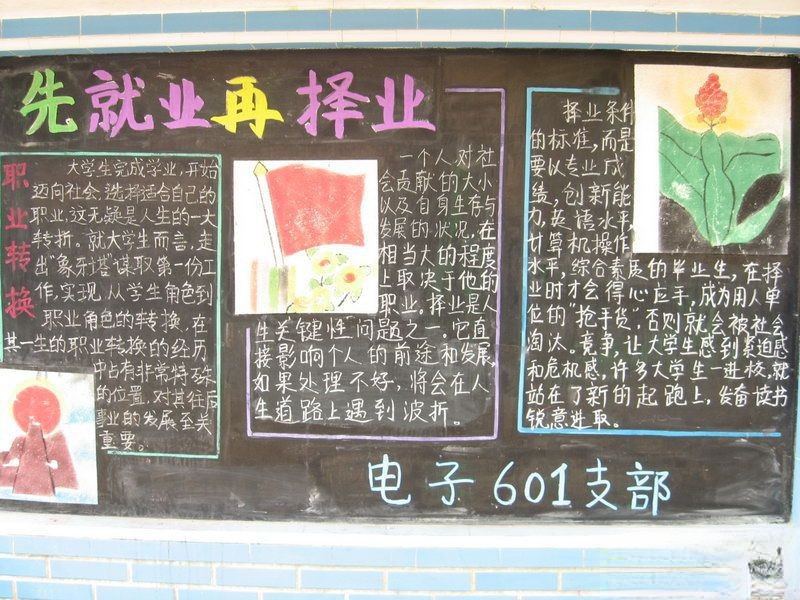 先就业再择业
职业转换
大学生完成学业，开始
迈向社会，选择适合自己的
职业，这无疑是人生的一大
转折。就大学生而言，走
出"象牙塔"谋取第一份工
作，实现从学生角色到
职业角色的转换，在
其一生的职业转换的经历
中占有非常特殊
的位置，对其往后
事业的发展至关
重要。
一个人对社
会贡献的大小
以及自身生存与
发展的状况，在
相当大的程度
上取决于他的
职业。择业是人
生关键性"问题之一。它直
接影响个人的前途和发展，
如果处理不好，将会在人
生道路上遇到波折。
择业条件
的标准，而是
要以专业成
绩，创新能
力，英语水平
计算机操作
水平，综合素质的毕业生，在择
业时才会得心应手，成为用人单
位的"抢手货"，否则就会被社会
淘汰。竞争，让大学生感到紧迫感
和危机感，许多大学生一进校，就
站在了新的起跑上，发奋读书
锐意进取。
电子601支部